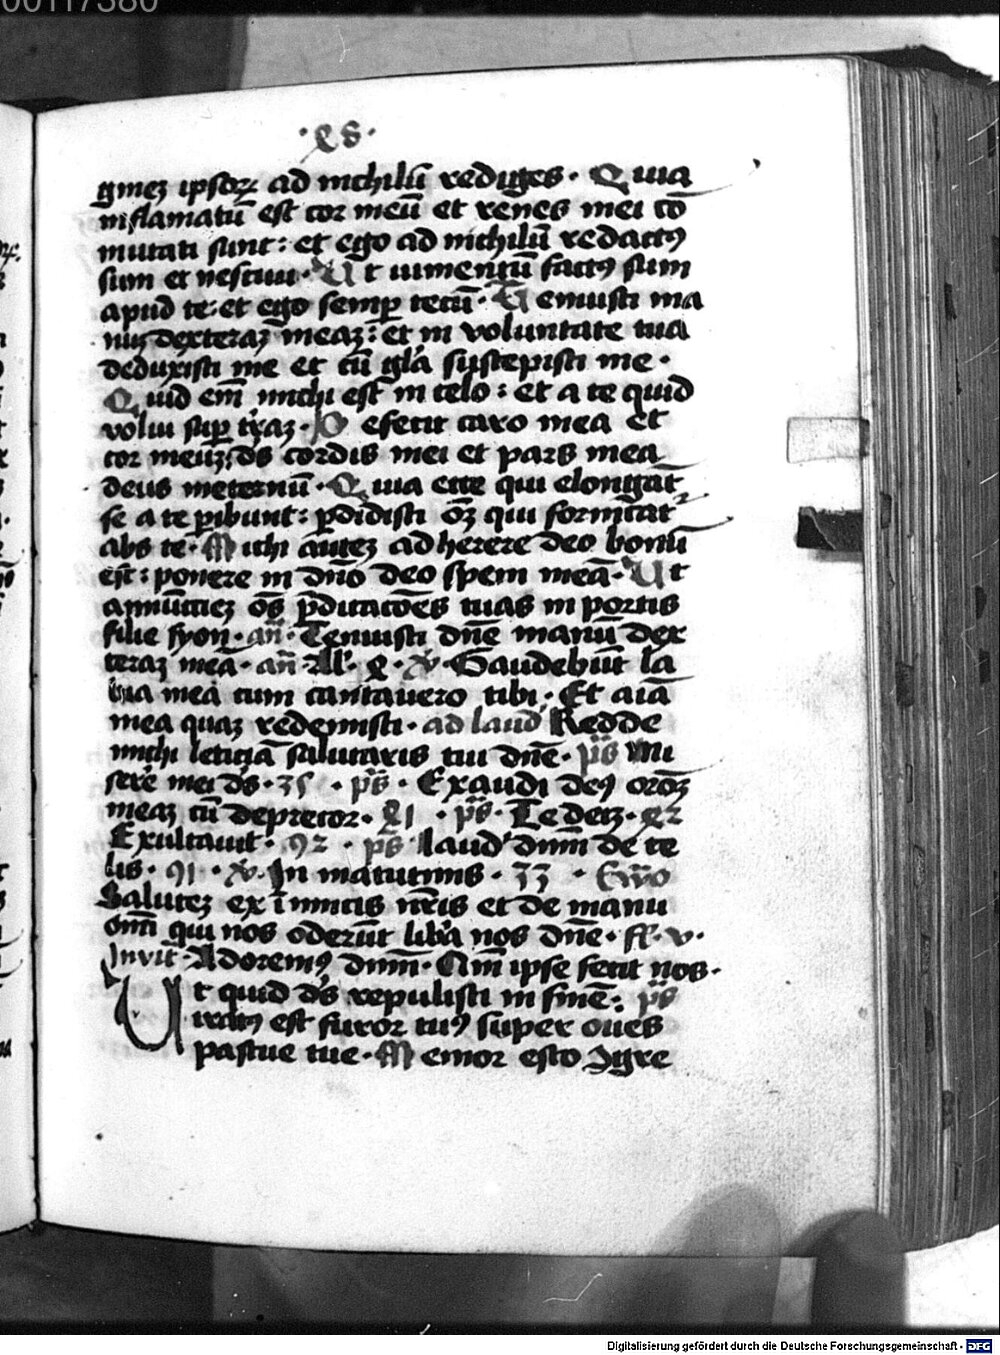 00117380
·es·
ginez ipsoꝝ ad nichilū rediges· Quia
inflamatū est cor meū et renes mei cō
mutati sunt: et ego ad nichilū redactꝰ
sum et nesciui· Ut iumentū factꝰ sum
apud te: et ego semꝑ tecū· Tenuisti ma
nuz dexteraz meaz: et in voluntate tua
deduxisti me et cū gl̄a suscepisti me·
Quid em̄ michi est in celo: et a te quid
volui suꝑ t̄raz· Defecit caro mea et
cor meuz: ds̄ cordis mei et pars mea
deus ineternū· Quia ecce qui elongāt
se a te ꝑibunt: ꝑdidisti om̄z qui fornicāt
abs te· Michi autez adherere deo bonū
est: ponere in dn̄o deo spem meā· Ut
annūctiez om̄s p̄dicatōēs tuas in portis
filie syon· an̄· Tenuisti dn̄e manū dex
teraz meā· an̄ All'· ꝟ· Gaudebūt la
bia mea cum cantauero tibi· Et aīa
mea quaz redemisti· ad laud' Redde
michi leticiā salutaris tui dn̄e· ps̄ Mi
sere mei ds̄· 35 · ps̄· Exaudi deꝰ oroz̄
meaz cū deprecor· 81 · ps̄· Te decz· 82
Exultauit· 92 · ps̄ Laud' dnm̄ de ce
lis· 91 · ꝟ· In matutinis· 33 · Ewo
Salutez ex inimicis nr̄is et de manu
om̄i qui nos oderūt libā nos dn̄e· ff· v·
Invit̄· Adoremꝰ dnm̄· Qm̄ ipse fecit nos·
Ut quid ds̄ repulisti in finē: ps̄
iratꝰ est furor tuꝰ super oues
pascue tue· Memor esto 9gre
Digitalisierung gefördert durch die Deutsche Forschungsgemeinschaft - DFG